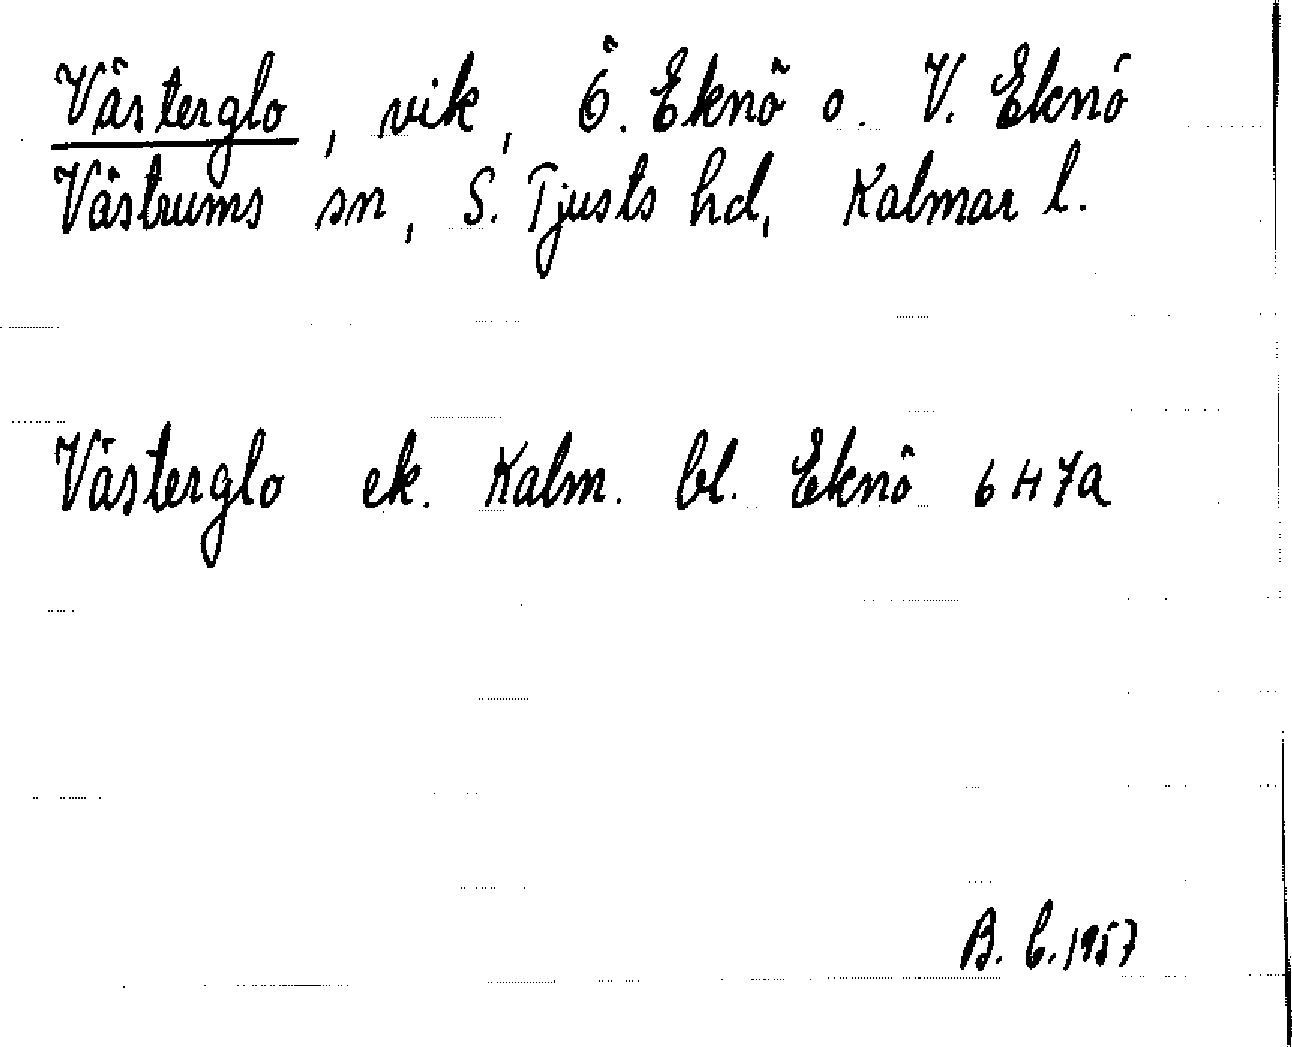 Västerglo, vik, Ö. Eknö o. V. Eknö
Västrums sn, S. Tjusts hd, Kalmar l.
Västerglo ek. Kalm. bl. Eknö 6 H 7a
B. C. 1957